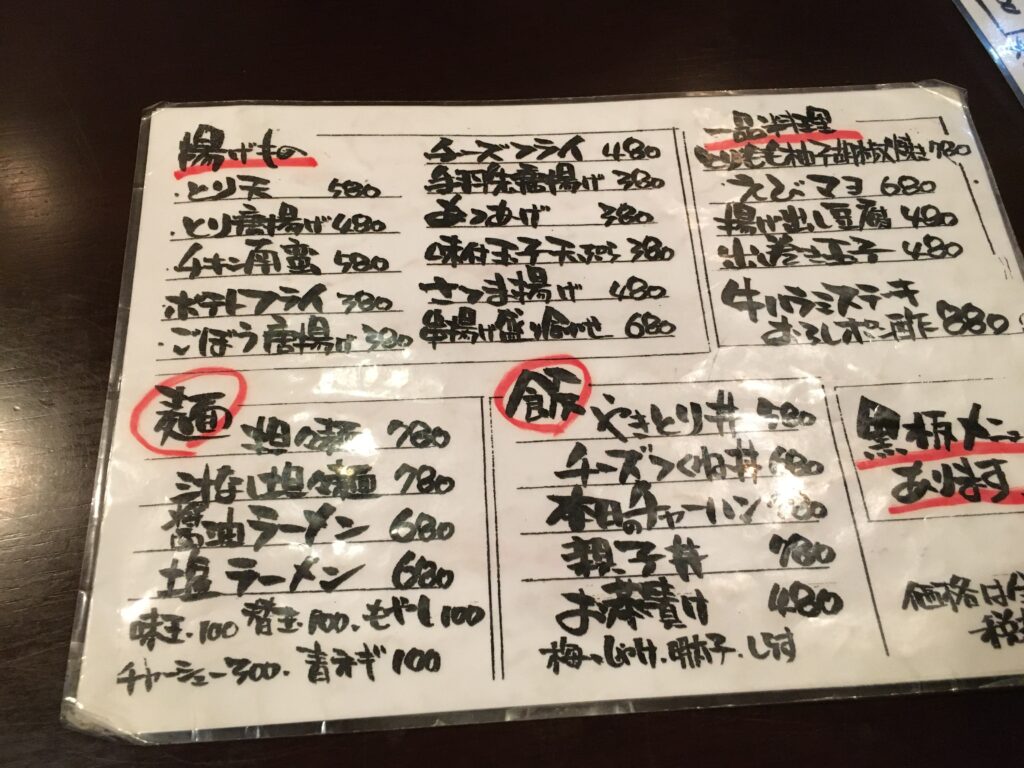 揚げもの
・とり天 580
・とり唐揚げ 480
・チキン南蛮 580
ポテトフライ 380
ごぼう唐揚げ 380
チーズフライ 480
唐揚げ 380
あつあげ 380
味付玉子天ぷら 380
さつま揚げ 480
串揚げ盛り合わせ 680
一品料理
とりもも柚子胡椒焼き 780
えびマヨ 680
揚げ出し豆腐 480
出し巻き玉子 480
牛ハラミステーキ
おろしポン酢 880
麺
担々麺 780
汁なし担々麺 780
醤油ラーメン 680
塩ラーメン 680
味玉・100 替玉・100、もやし100
チャーシュー300・青ネギ100
飯
やきとり丼 580
チーズつくね丼 680
本日のチャーハン
親子丼 780
お茶漬け 480
梅、しゃけ、明太子・しらす
黒板メニュー
あります
価格は
税